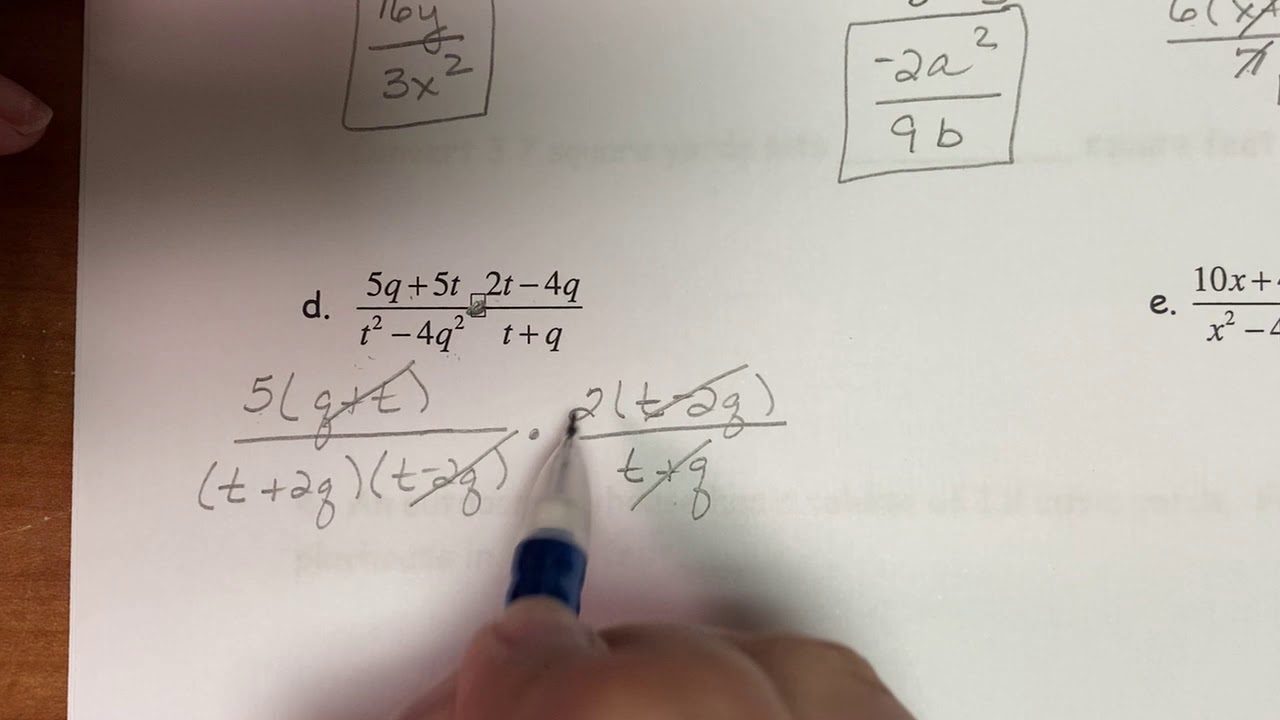 16y
3x²
-2a²
9b
6(x+
7
d. 5q+5t · 2t−4q
t²−4q² t+q
e. 10x+
x²−4
5(q+t) · 2(t-2q)
(t+2q)(t-2q) t+q